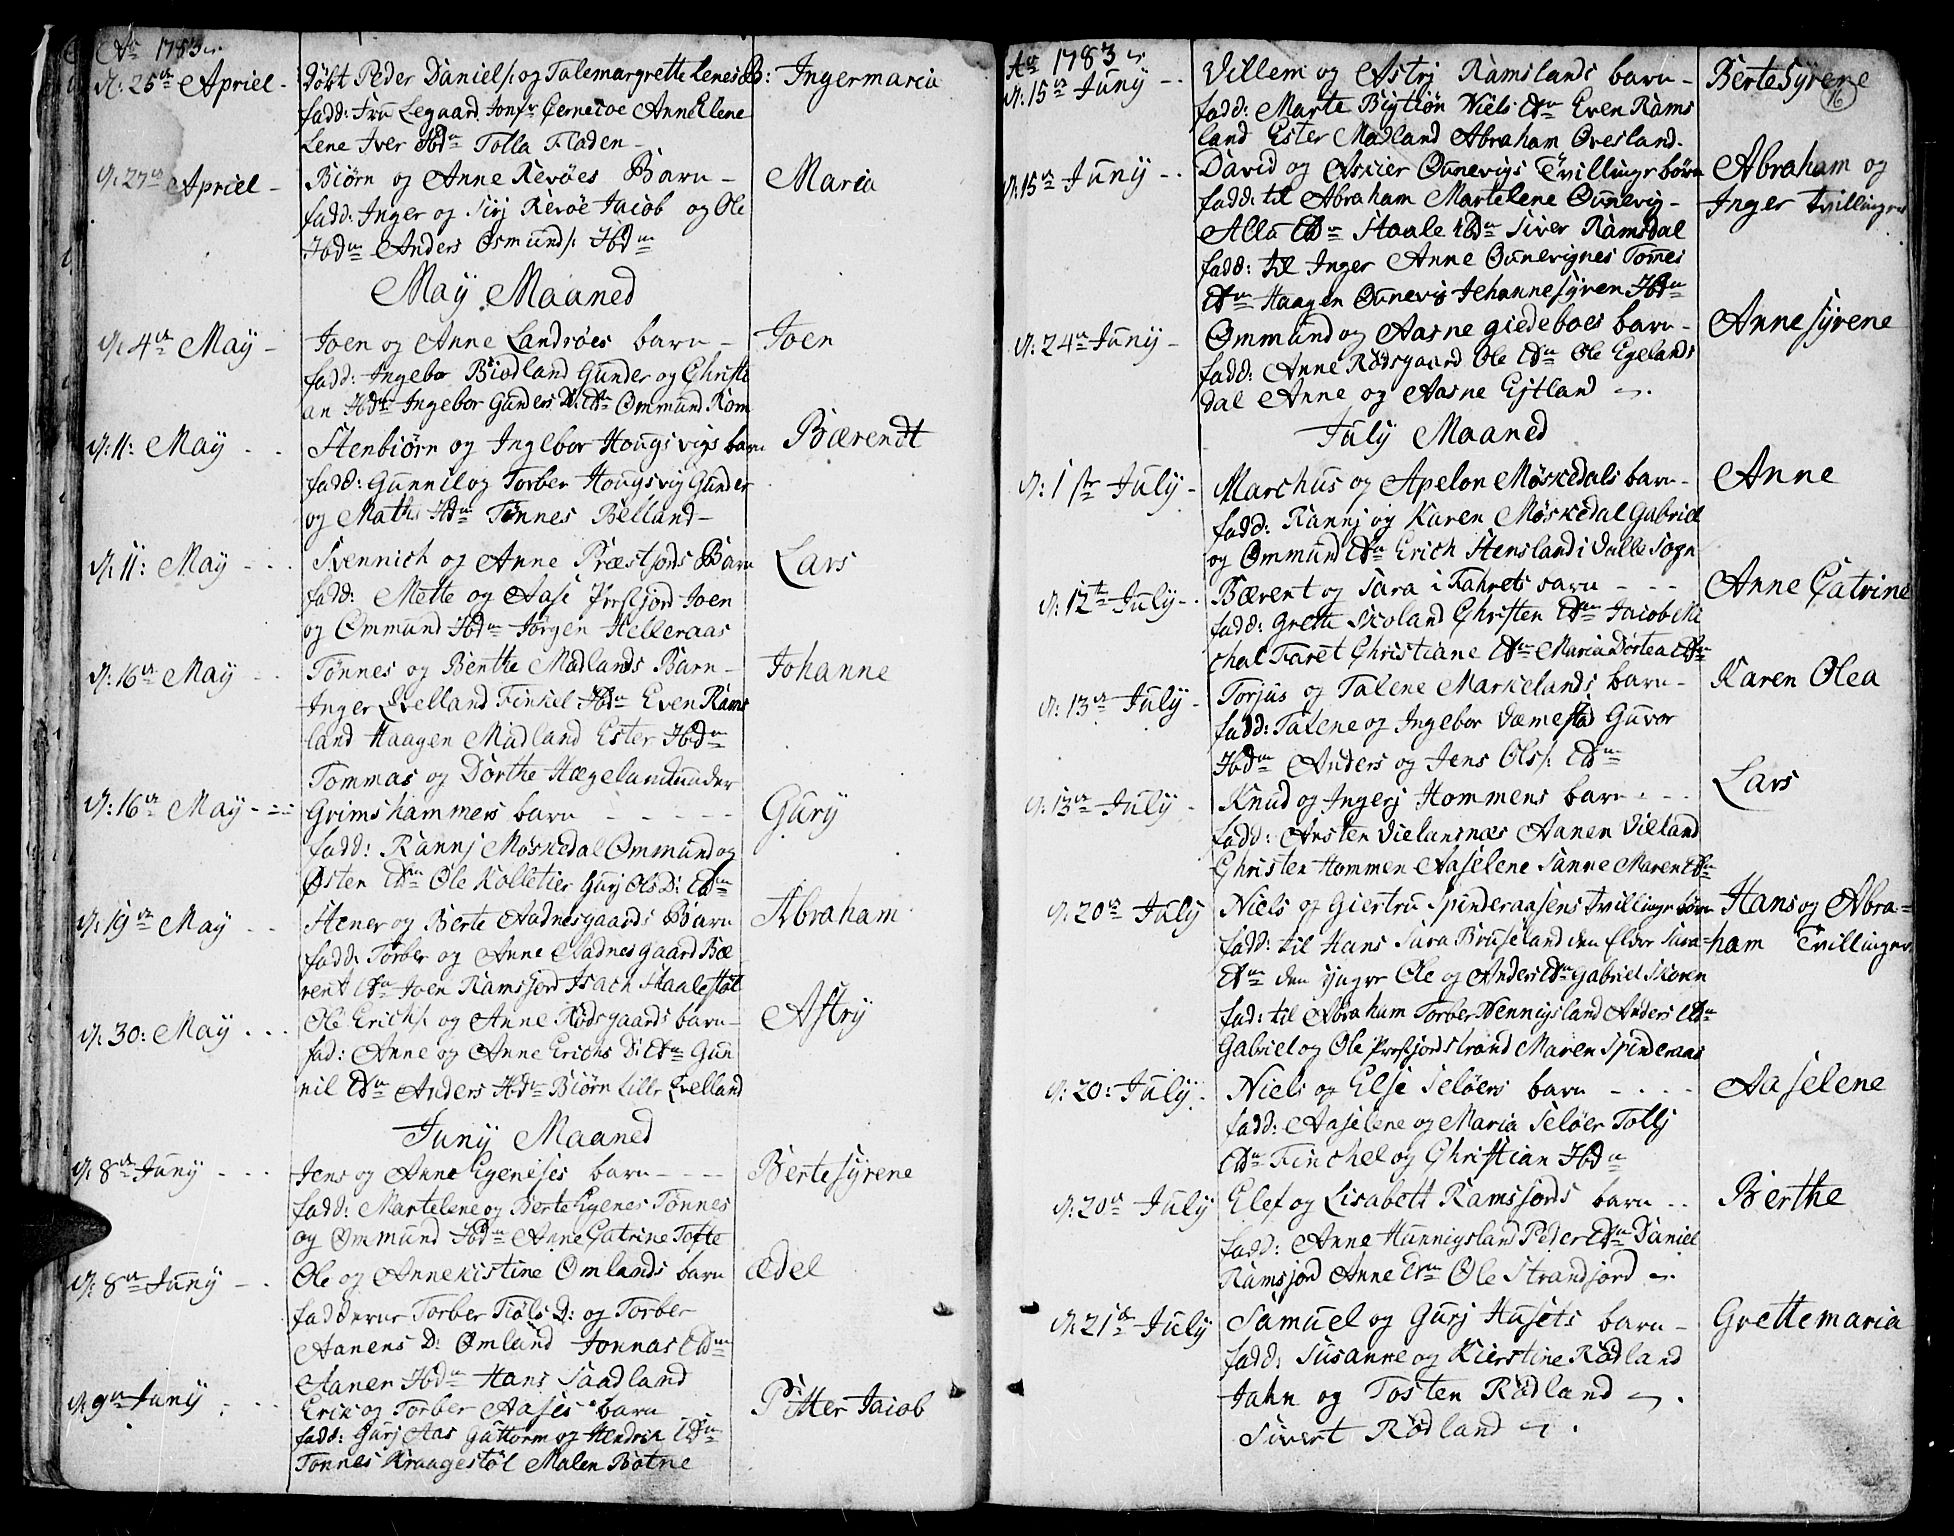 Ao 1783
d: 25de Apriel - døbt Peder Daniels: og Talemargrette Lenes B: Ingermaria
fadd: Fru Legaard Jomfr Anne Elene
Lene Iver Ibdm Tolla Fladen -
d: 27de Apriel - Biørn og Anne Revøes Barn - Maria
fadd: Inger og Sirj Revøe Jacob og Ole
Ibdm Anders Osmunds: Ibdm
May Maaned
d: 4de May - Joen og Anne Landrøes barn - Joen
fadd: Ingebor Biødland Gunder og Christi
an Ibdm Ingebor Gunders D: Ibdm Ommund Rom
d: 11: May - - Stenbiørn og Ingebor Hougsvigs barn Bærendt
fadd: Gunnil og Torber Hougsvig Gunder
og Maths Ibdm Tønnes Belland -
d: 11: May - - - Svennich og Anne Præstjords Barn Lars
fadd: Mette og Aase Prestjord Joen
og Ommund Ibdm Jørgen Helleraas
d: 16de May - - Tønnes og Benthe Madlands Barn - Johanne
Inger Qvelland Finkel Ibdm Even Rams
land Haagen Madland Ester Ibdm
Tommas og Dorthe Hægeland under
d: 16de May - - - Grimshammers barn - - - - - Gury
fadd: Rannj Møskedal Ommund og
Østen Ibdm Ole Kolletier Gurj Ols D: Ibdm
d: 19de May - - Stener og Berte Aadnesgaards Barn Abraham
fadd: Torber og Anne Aadnesgaard Bæ
rent Ibdm Joen Ramsjord Isach Staalestøl
d: 30: May - - - Ole Erichs: og Anne Rødsgaards barn - Astry
fad: Anne og Anne Erichs D: Ibdm Gun
nil Ibdm Anders Ibdm Biørn Lille Qvelland
Juny Maaned
d: 8de Juny - - - Jens og Anne Egeneses barn - - - Bertesyrene
fadd: Martelene og Berte Egenes Tønnes
og Ommund Ibdm Anne Catrine Tofte
d: 8de Juny - - Ole og Annekistine Omlands barn Ædel
fadderne Torber Tiøls D: og Torber
Aanens D: Omland Jonnas Ibdm
Aanen Ibdm Hans Saadland
d: 9de Juny - - - Erik og Torber Aases barn Pitter Jacob
fadd: Gurj Aas Guttorm og Hendrik Ibdm
Tønnes Kraagestøl Malen Botne
Ao 1783
16
d: 15de Juny - - Villem og Astrj Ramslands barn - Bertesyrene
fadd: Marte Bigtiøn Niels Ibdm Even Rams
land Ester Madland Abraham Ovesland.
d: 15de Juny - - David og Askier Ounevigs Tvillinge børn Abraham og
fadd: til Abraham Martelene Ounevig - Inger Tvillinger
Alla Ibdm Staale Ibdm Siver Ramsdal
fadd: til Inger Anne Ounevignes Tomes
Ibdm Haagen Ounevig Johannesyren Ibdm
d: 24de Juny - Ommund og Aasne giedeboes barn - Annesyrene
fadd: Anne Rødsgaard Ole Ibdm Ole Egelands
dal Anne og Aasne Ejtland
July Maaned
d: 1ste July - Marchus og Apelon Møskedals barn - Anne
fadd: Rannj og Karen Møskedal Gabriel
og Ommund Ibdm Erich Stensland i Valle Sogn
d: 12te July - - Bærent og Sara i Fahrets barn - - - Anne Catrine
fadd: Grette Skoland Christen Ibdm Jacob Mi
chal Faret Christiane Ibdm Maria Dortea Ibdm
d: 13de July - Torjus og Talene Markelands barn - Karen Olea
fadd: Talene og Ingebor Væmestad Guvor
Ibdm Anders og Jens Ols: Ibdm
d: 13de July - Knud og Ingerj Hommens barn - - - Lars
fadd: Arsten Vielansnæs Aanen Vieland
Christen Hommen Aaselene Sanne Maren Ibdm
d: 20de July Niels og Giertru Spinderaasens Tvillinge børn Hans og Abra=
fadd: til Hans Sara Bruseland den Eldre Sara= ham Tvillinger
Ibdm den yngre Ole og Anders Ibdm Gabriel Skoren
fad: til Abraham Torber Hennigsland Anders Ibdm
Gabriel og Ole Prestjordstrand Maren Spinderaas
d: 20: July - Niels og Else Seløers barn - - - - Aaselene
fadd: Aaselene og Maria Seløer Tollj
Ibdm Finchel og Christian Ibdm
d: 20de July Elef og Lisabett Ramsjords barn - - Berthe
fadd: Anne Hunnigsland Peder Ibdm Daniel
Ramsjord Anne Ibdm Ole Strandjord
d: 21de July Samuel og Gurj Husets barn - Grettemaria
fadd: Susanne og Kierstine Rødland
Jahn og Tosten Rødland
Sivert Rødland